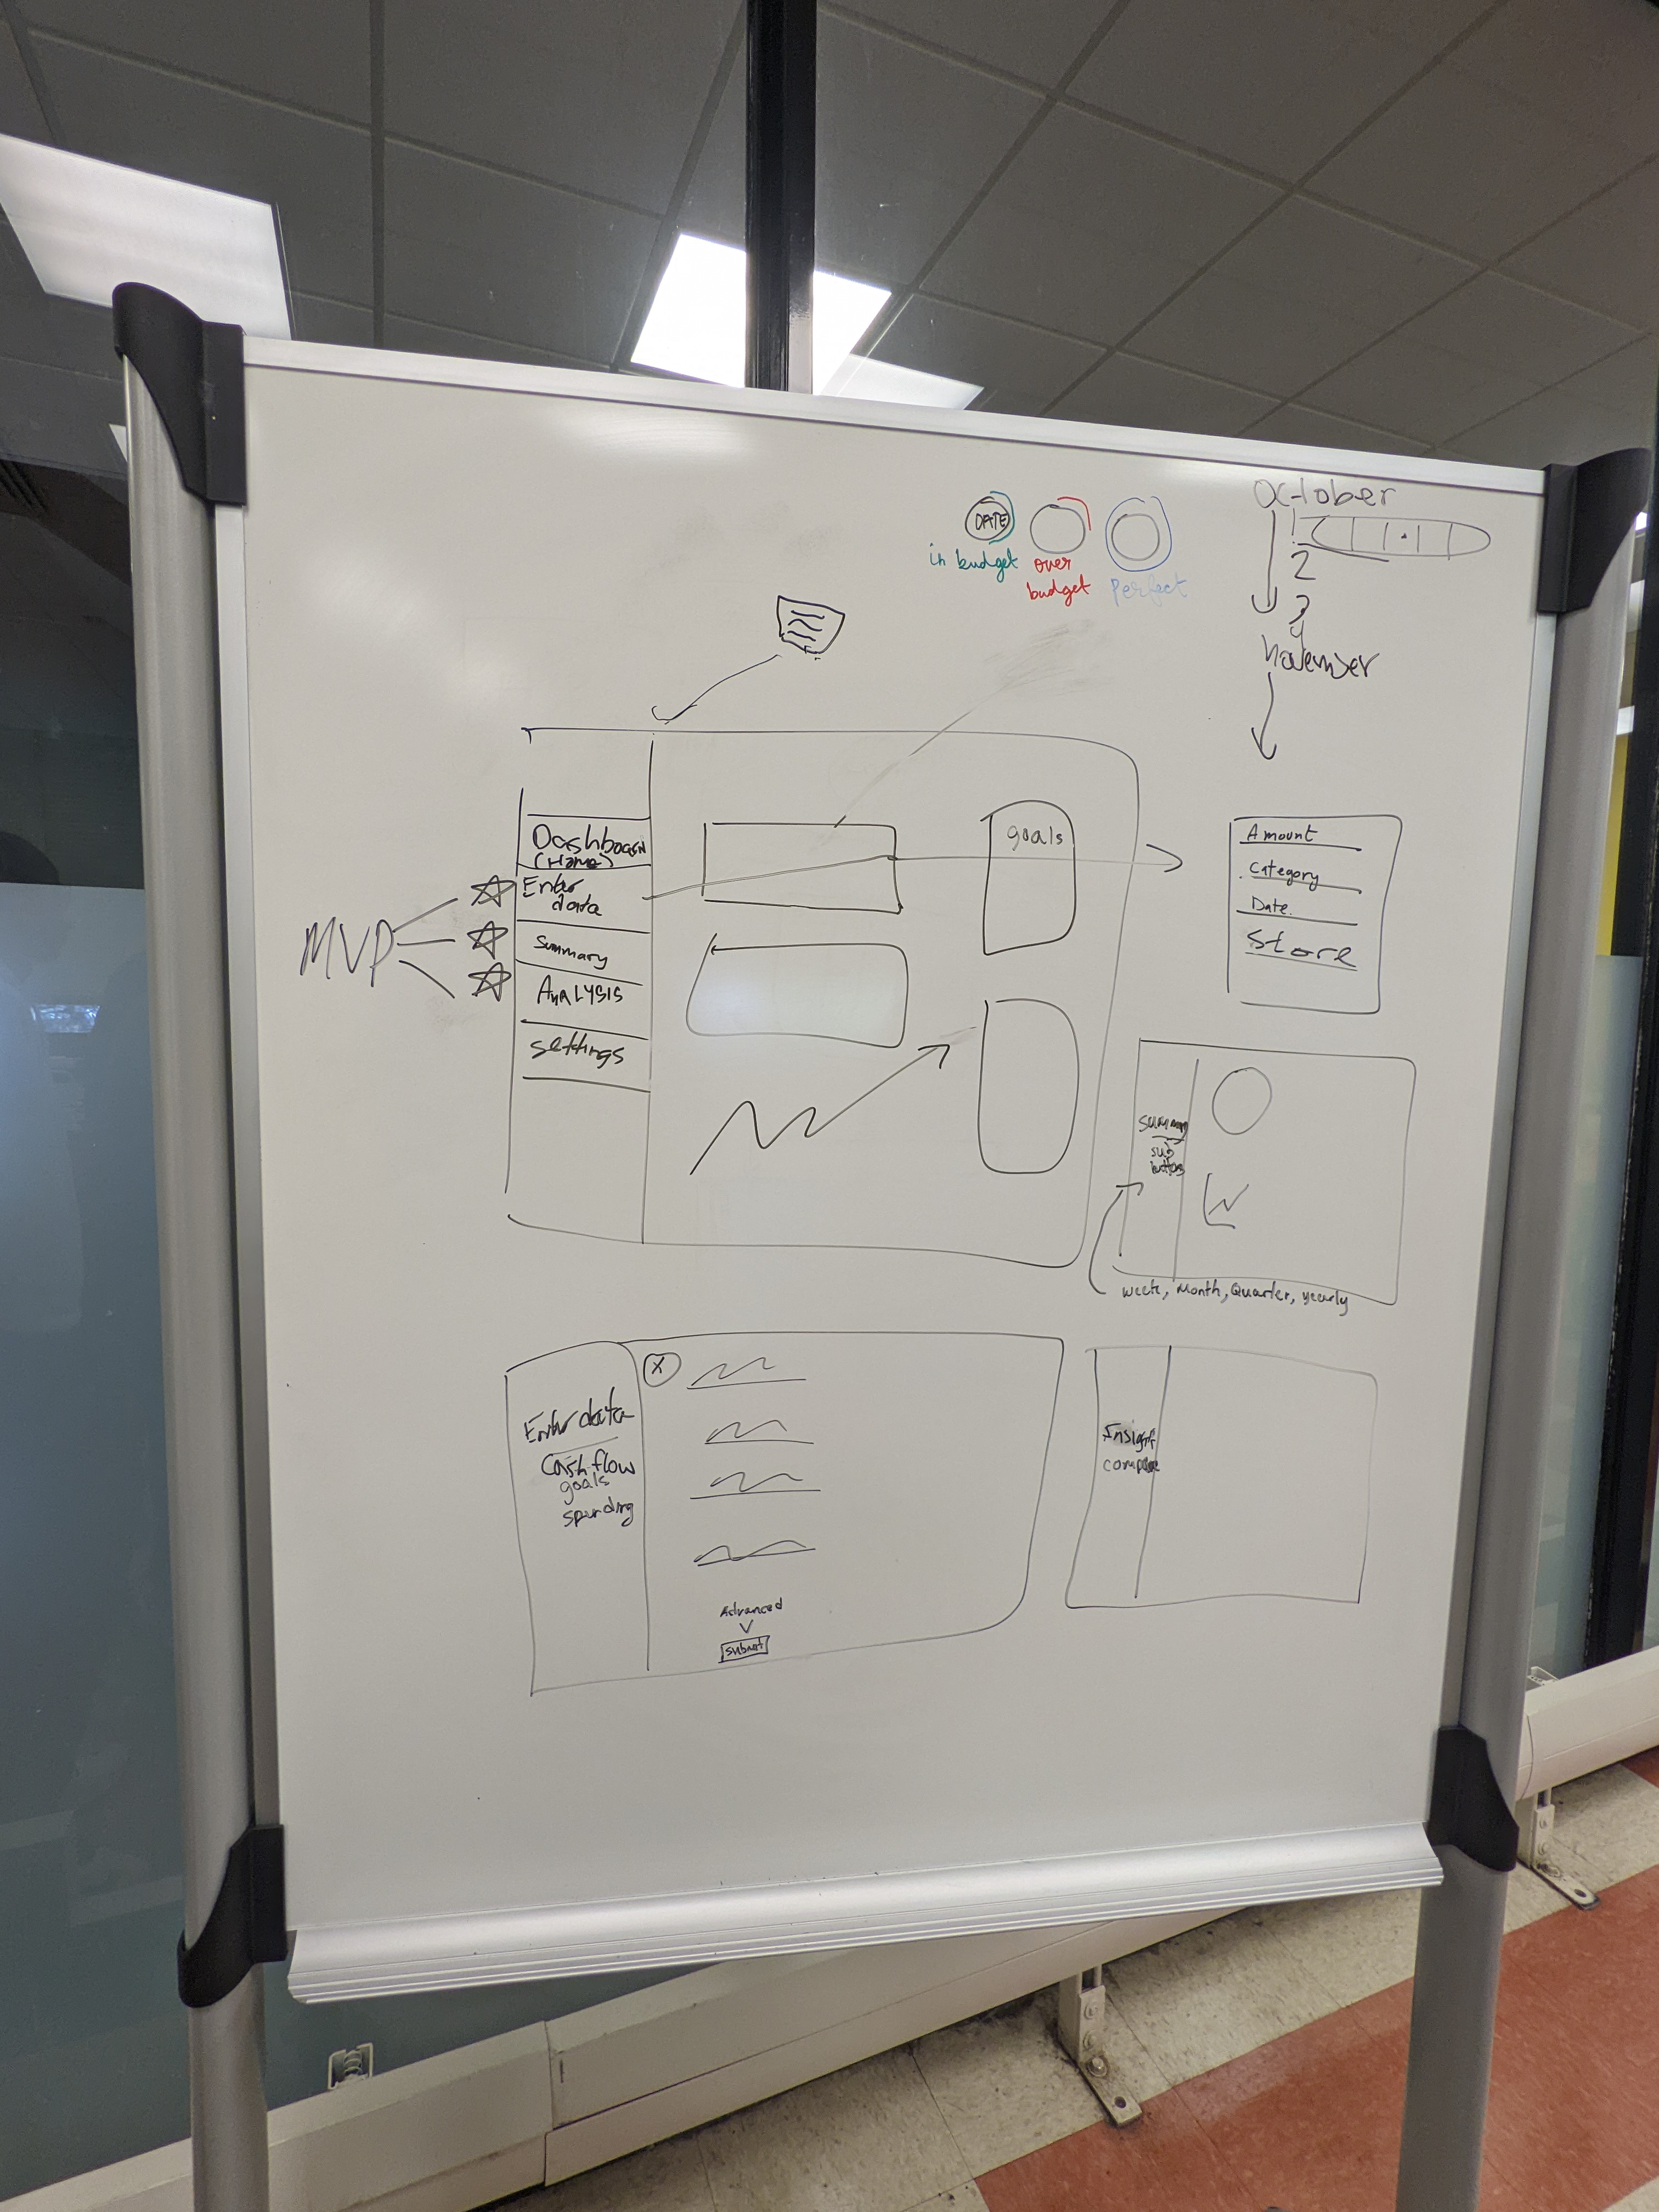 October
DATE
in budget
over
budget
Perfect
1
2
3
4
November
Dashboard
(Home)
Enter
data
Summary
ANALYSIS
settings
MVP
goals
Amount
Category
Date.
Store
Summary
sub
buttons
week, Month, Quarter, yearly
Enter data
Cash flow
goals
spending
X
Advanced
submit
Insight
compare